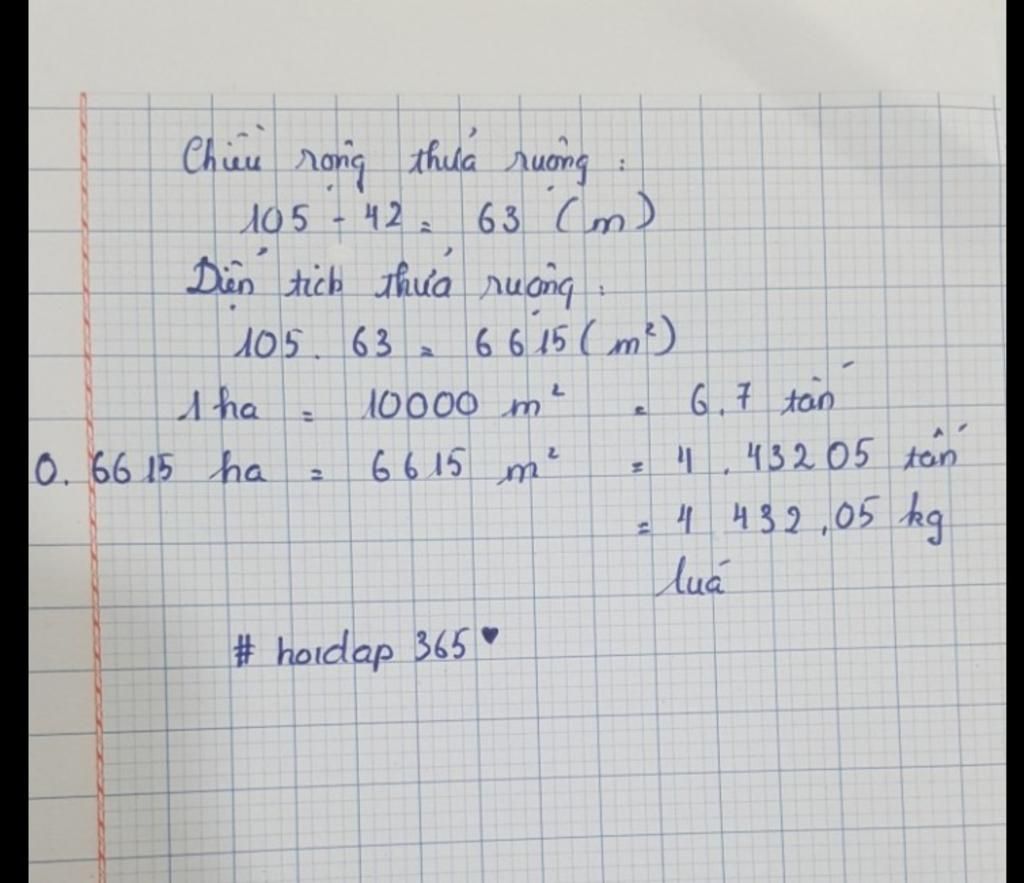 Chiều rộng thửa ruộng :
105 - 42 = 63 (m)
Diện tích thửa ruộng :
105 . 63 = 6615 (m²)
1 ha = 10000 m² = 6,7 tấn
0.6615 ha = 6615 m² = 4,43205 tấn
= 4 432,05 kg
luá
# hoidap 365 ♥